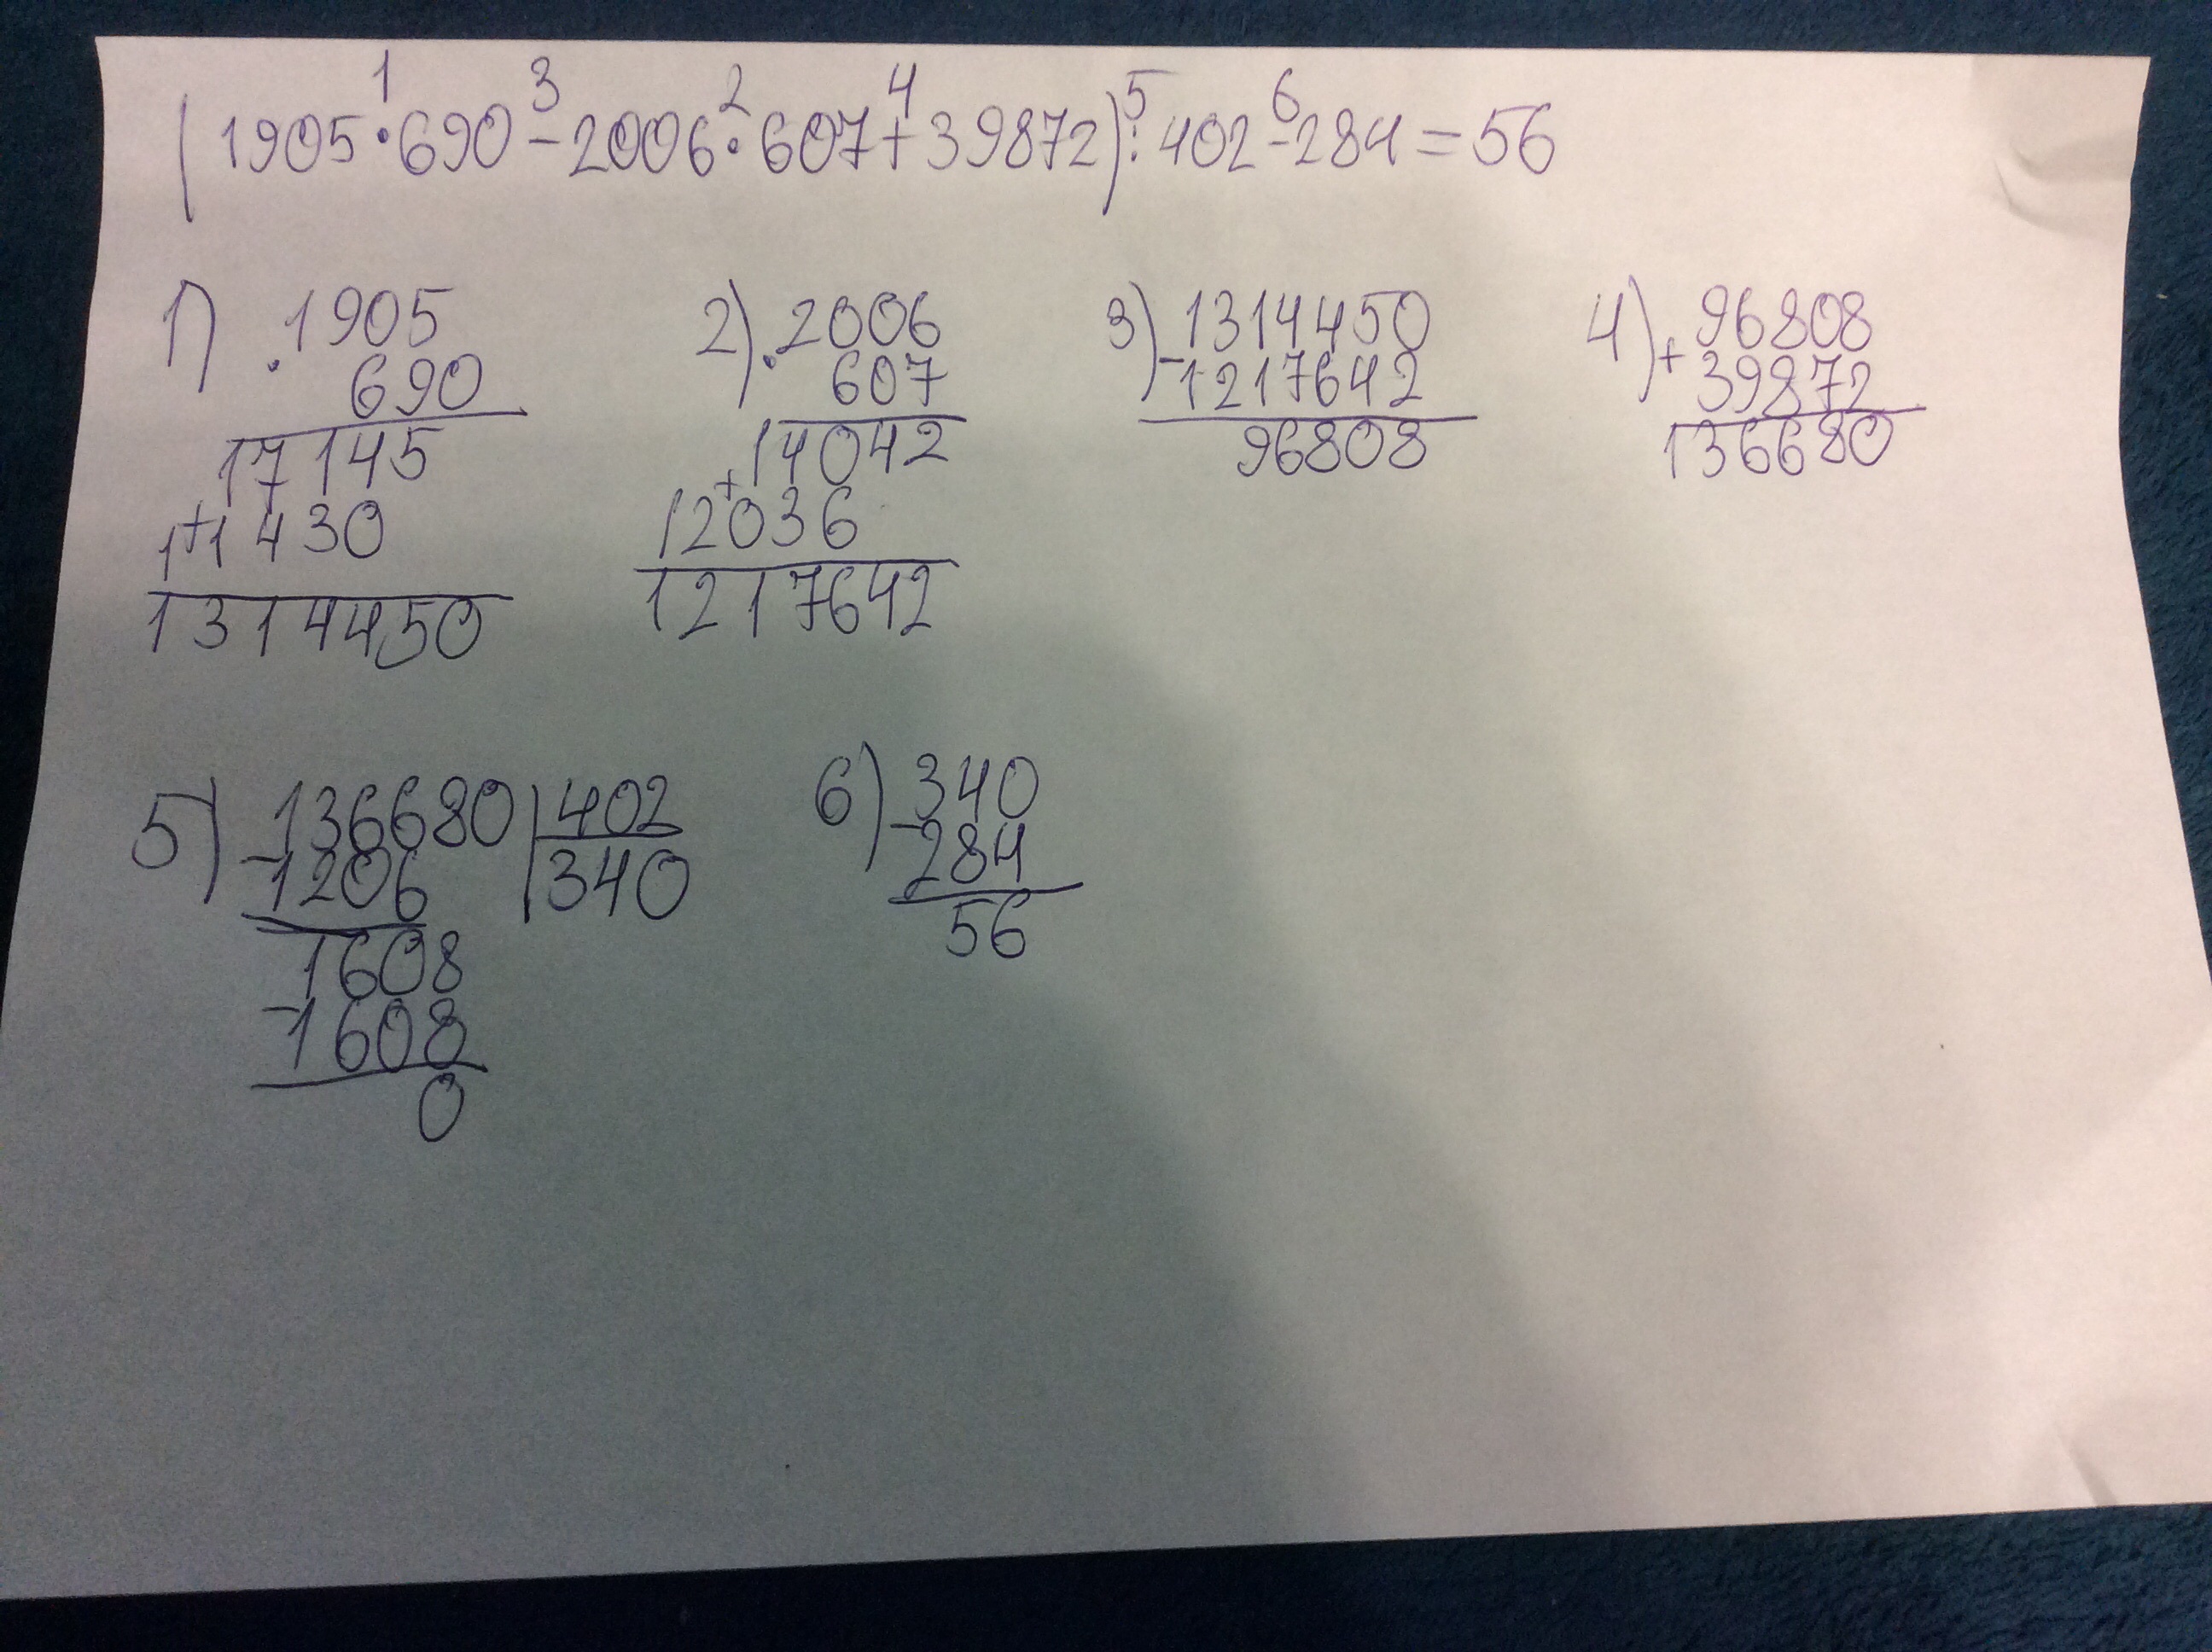 (1905·690-2006·607+39872):402-284=56
1 3 2 4 5 6
1) ·1905 2) ·2006 3) -1314450 4) +96808
690 607 1217642 39872
17145 14042 96808 136680
+11430 +12036
1314450 1217642
5) -136680 | 402 6) -340
1206 340 284
1608 56
-1608
0